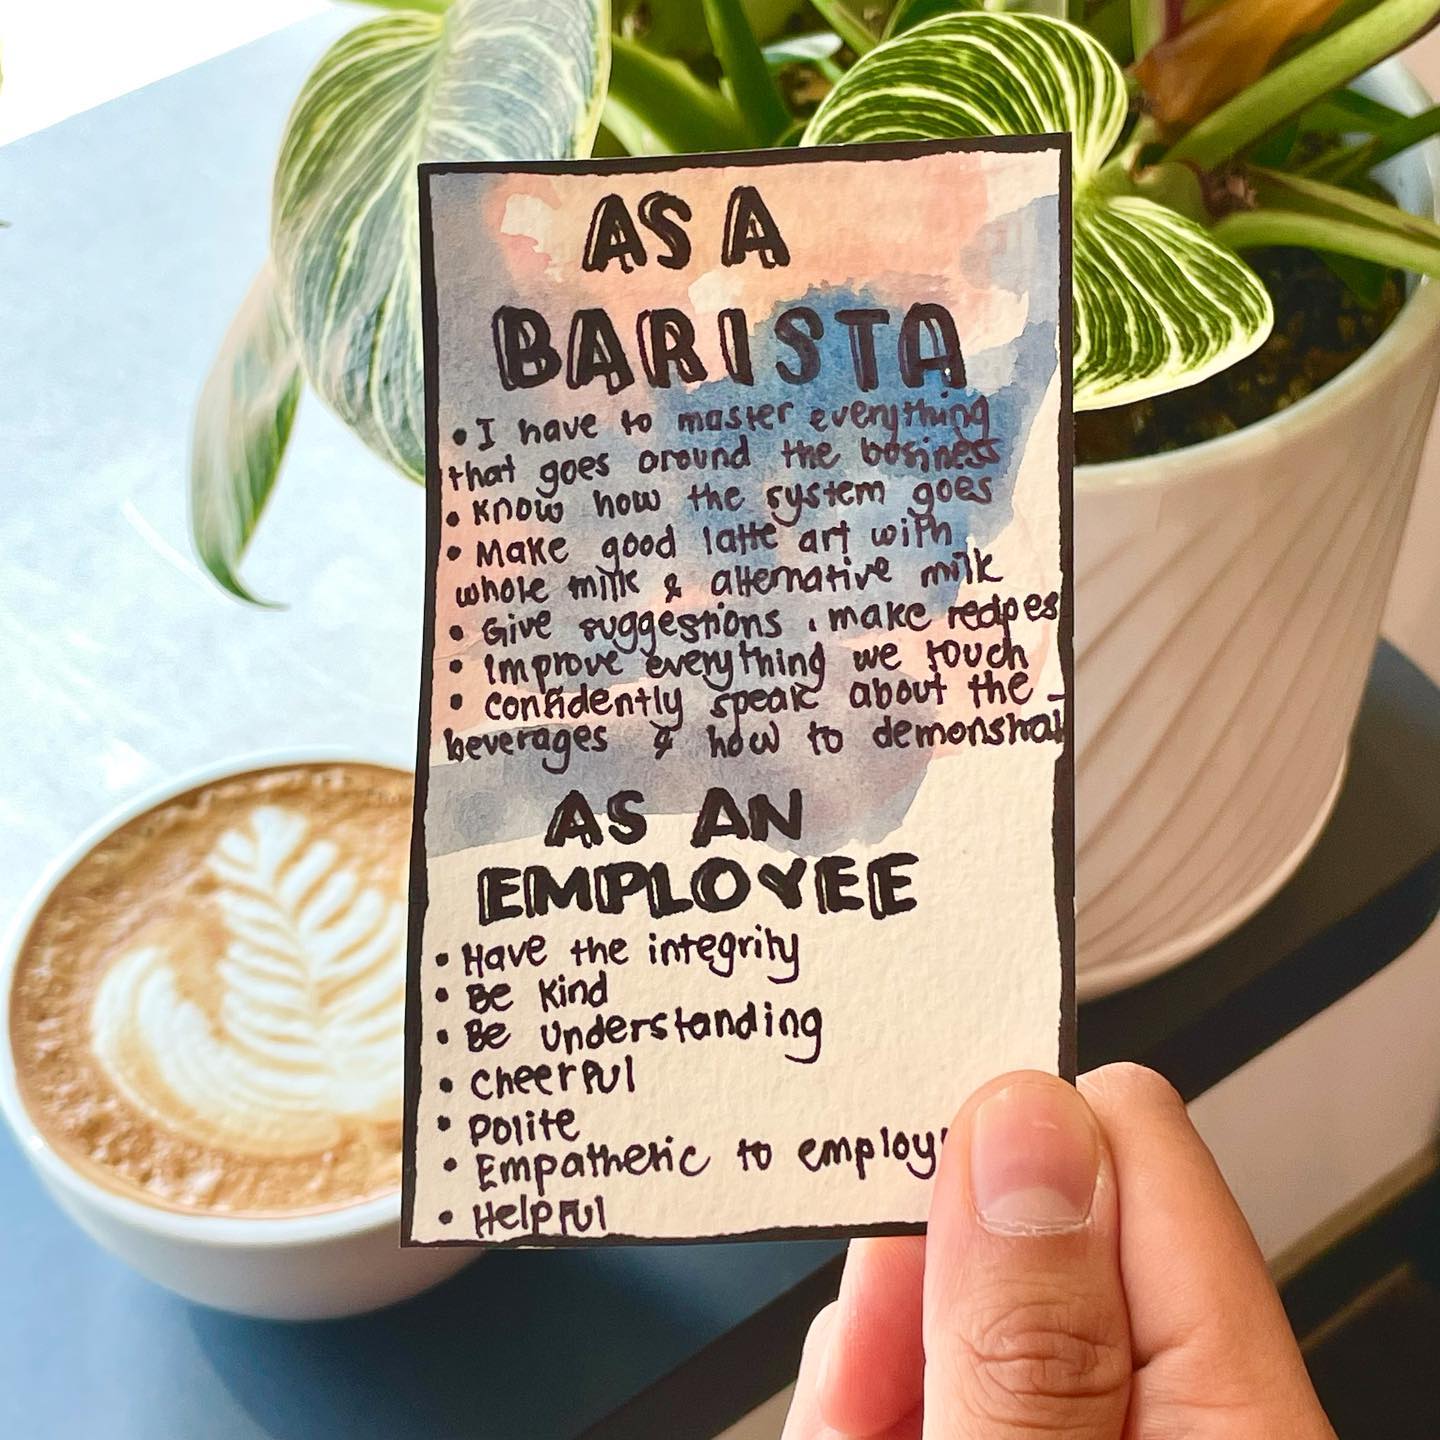 AS A
BARISTA
• I have to master everything
that goes around the business
• Know how the system goes
• Make good latte art with
whole milk & alternative milk
• Give suggestions, make recipes
• Improve everything we touch
• Confidently speak about the
beverages & how to
AS AN
EMPLOYEE
• Have the integrity
• Be Kind
• Be Understanding
• Cheerful
• Polite
• Empathetic to
• Helpful